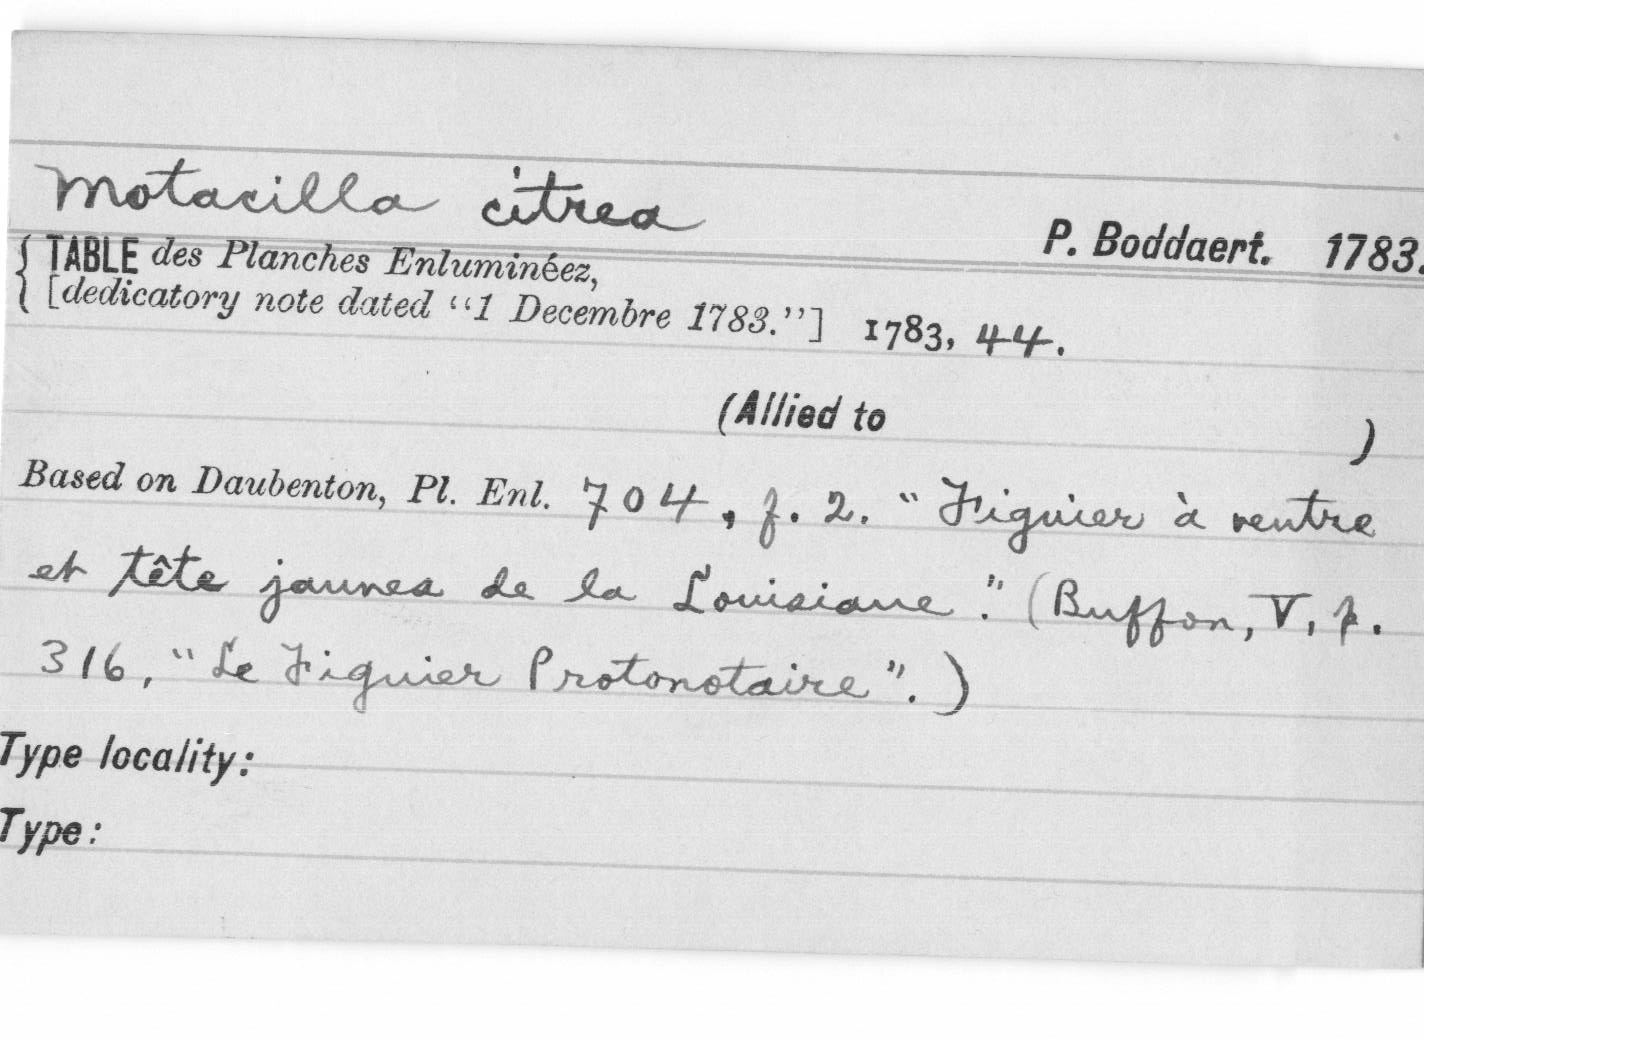 Motacilla citrea
P. Boddaert. 1783.
{ TABLE des Planches Enluminéez,
[dedicatory note dated “1 Decembre 1783.”] 1783, 44.
(Allied to )
Based on Daubenton, Pl. Enl. 704, f. 2. “Figuier à ventre
et tête jaunes de la Louisiane.” (Buffon, V, p.
316, “Le Figuier Protonotaire”.)
Type locality:
Type: